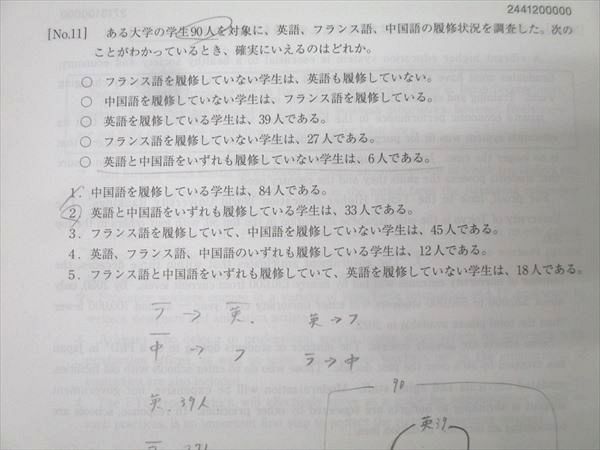 2441200000
[No.11] ある大学の学生90人を対象に、英語、フランス語、中国語の履修状況を調査した。次の
ことがわかっているとき、確実にいえるのはどれか。
○ フランス語を履修していない学生は、英語も履修していない。
○ 中国語を履修していない学生は、フランス語を履修している。
○ 英語を履修している学生は、39人である。
○ フランス語を履修していない学生は、27人である。
○ 英語と中国語をいずれも履修していない学生は、6人である。
1. 中国語を履修している学生は、84人である。
2. 英語と中国語をいずれも履修している学生は、33人である。
3. フランス語を履修していて、中国語を履修していない学生は、45人である。
4. 英語、フランス語、中国語のいずれも履修している学生は、12人である。
5. フランス語と中国語をいずれも履修していて、英語を履修していない学生は、18人である。
フ → 英. 英→フ
中 → フ フ→中
90
英. 39人
英39